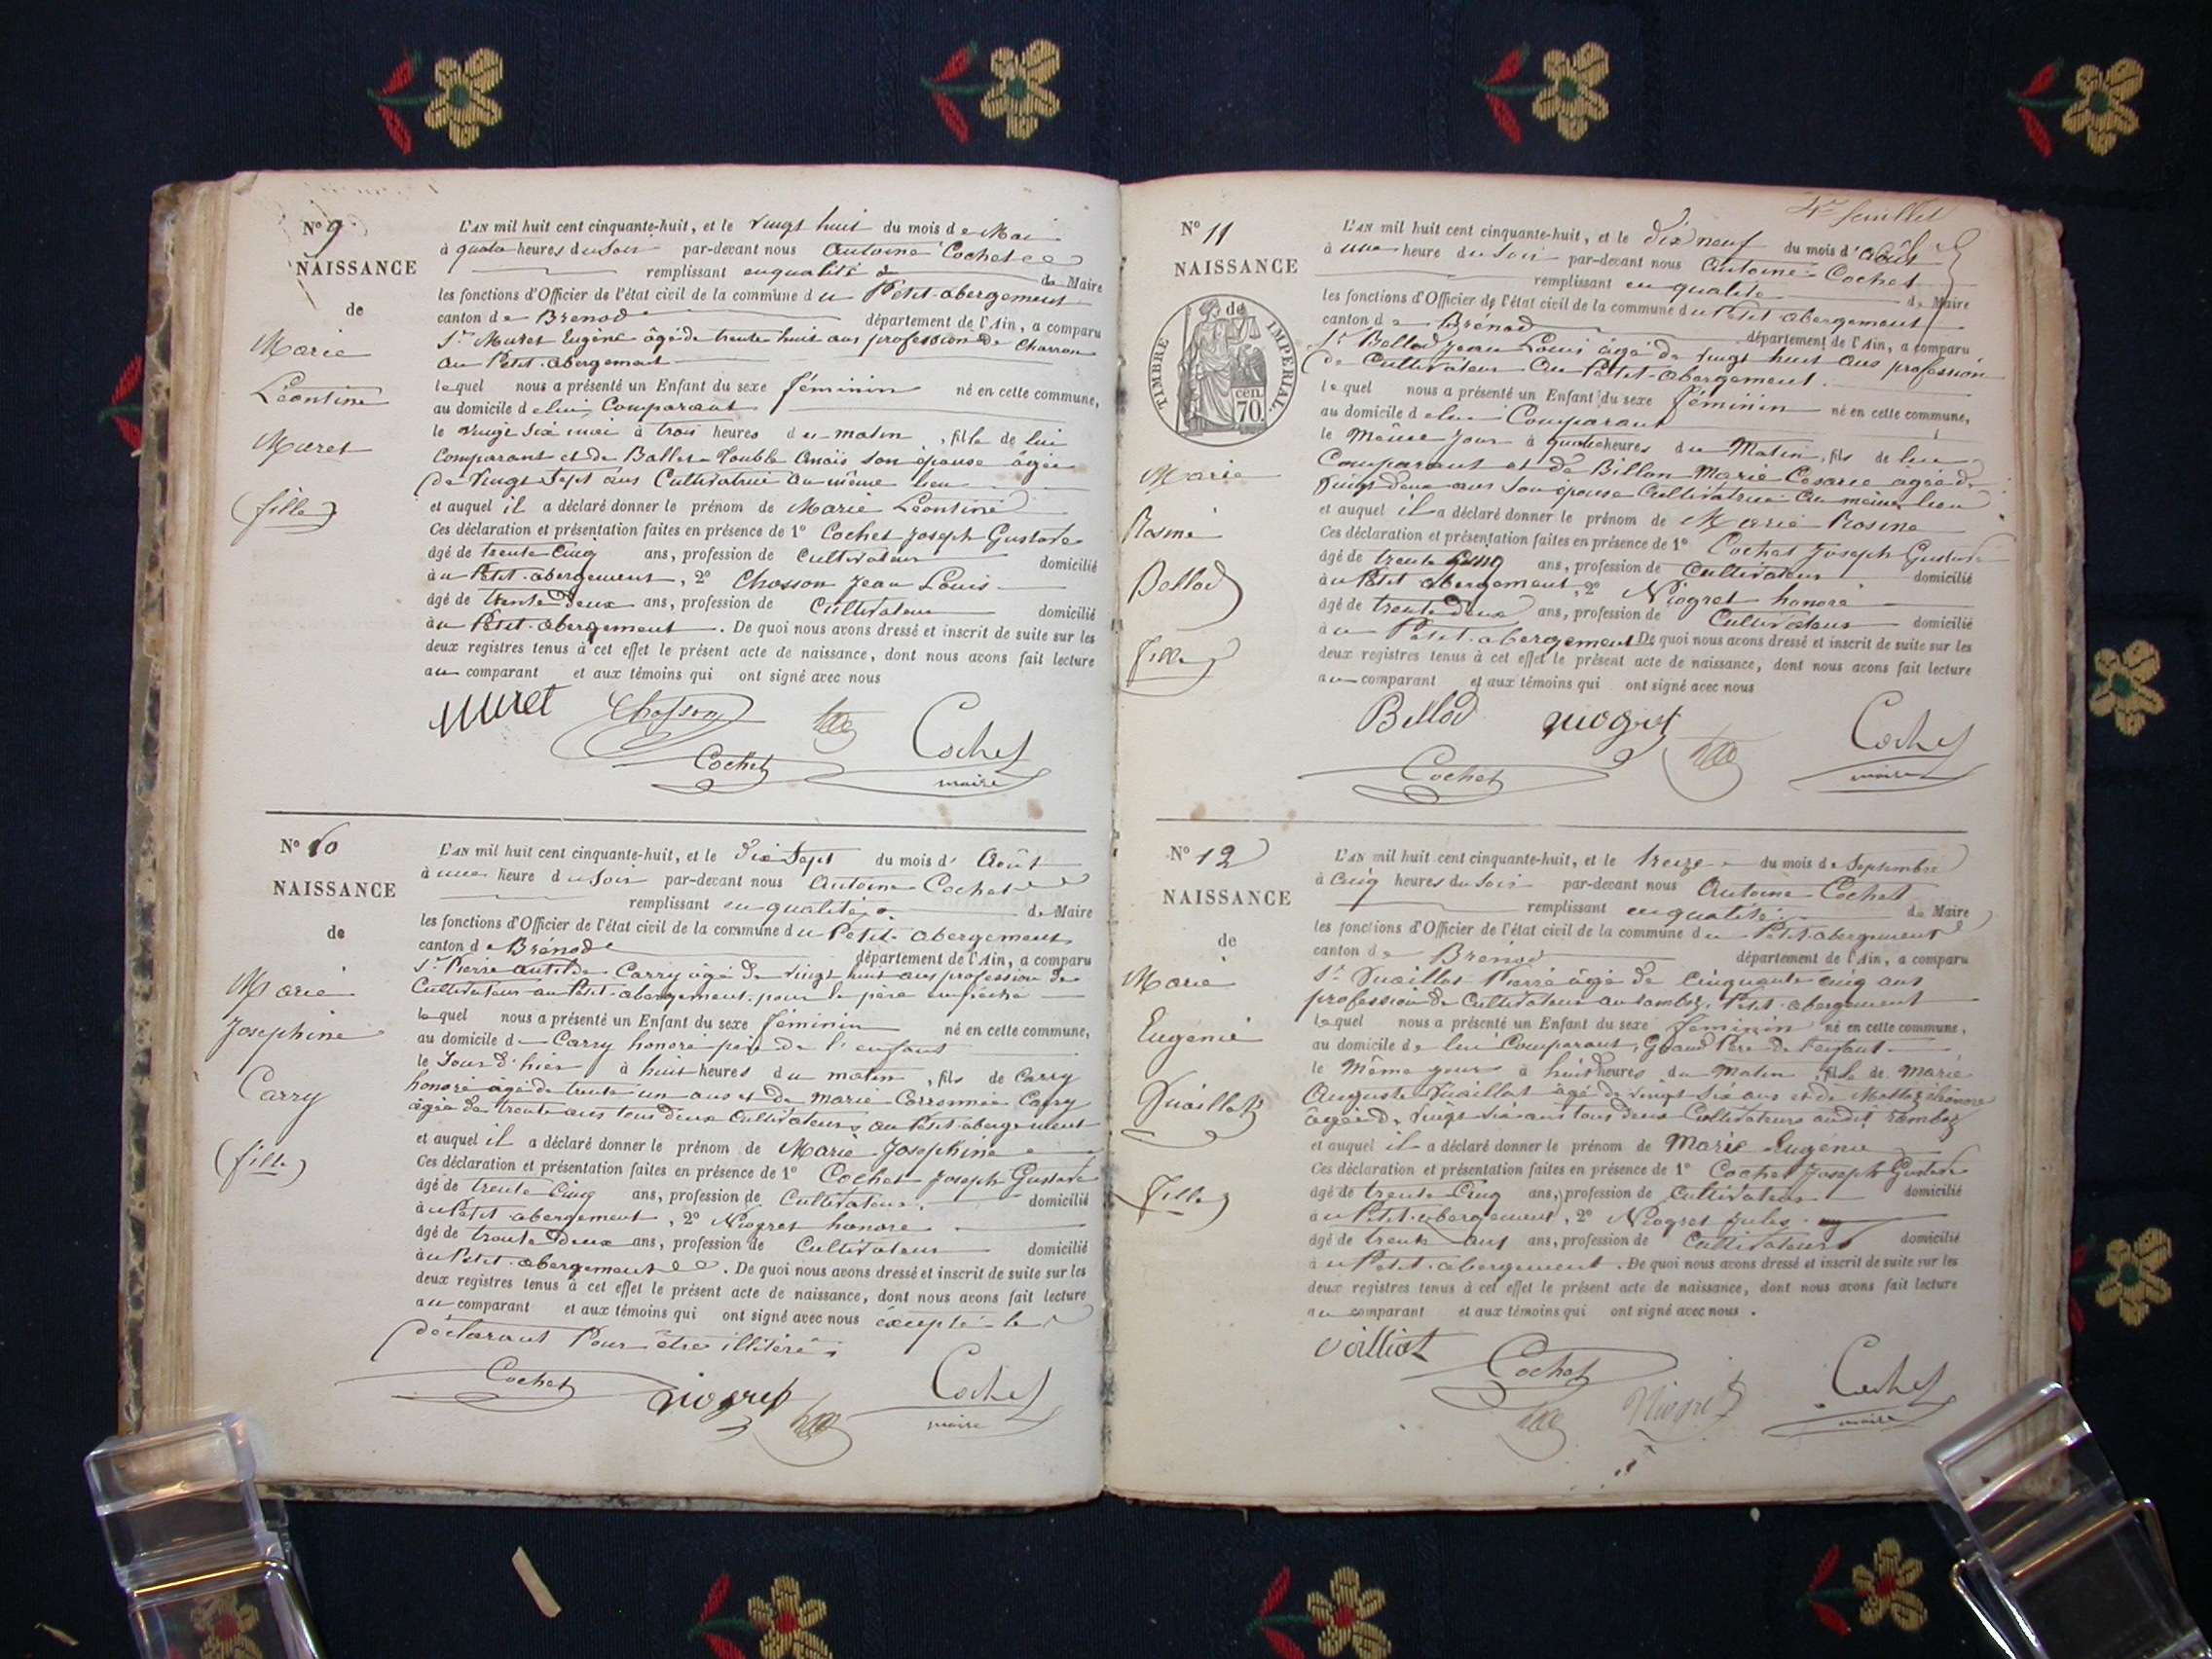 N° 9
NAISSANCE
de
Marie
Léontine
Muret
(fille)
L'AN mil huit cent cinquante-huit, et le vingt huit du mois de Mai
à quatre heures du soir par-devant nous Antoine Cochet
remplissant en qualité de Maire
les fonctions d'Officier de l'état civil de la commune du Petit-abergement
canton de Brenod département de l'Ain, a comparu
Sr Muret Eugène âgé de trente huit ans profession de Charron
au Petit-abergement
lequel nous a présenté un Enfant du sexe féminin né en cette commune,
au domicile de lui Comparant
le vingt six mai à trois heures du matin, fille de lui
Comparant et de Ballet-Double Anaïs son épouse âgée
de Vingt Sept ans Cultivatrice au même lieu
et auquel il a déclaré donner le prénom de Marie Léontine
Ces déclaration et présentation faites en présence de 1° Cochet Joseph Gustave
âgé de trente Cinq ans, profession de Cultivateur domicilié
au Petit-abergement, 2° Chosson Jean Louis
âgé de trente deux ans, profession de Cultivateur domicilié
au Petit-abergement. De quoi nous avons dressé et inscrit de suite sur les
deux registres tenus à cet effet le présent acte de naissance, dont nous avons fait lecture
au comparant et aux témoins qui ont signé avec nous
Muret Chosson
Cochet Cochet
maire
N° 10
NAISSANCE
de
Marie
Josephine
Carry
(fille)
L'AN mil huit cent cinquante-huit, et le dix Sept du mois d'Août
à une heure du soir par-devant nous Antoine Cochet
remplissant en qualité de Maire
les fonctions d'Officier de l'état civil de la commune du Petit-abergement
canton de Brénod département de l'Ain, a comparu
Sr Pierre Carry âgé de vingt huit ans profession de
Cultivateur au Petit-abergement, pour le père
lequel nous a présenté un Enfant du sexe féminin né en cette commune,
au domicile de Carry honoré père de l'enfant
le Jour d'hier à huit heures du matin, fils de Carry
honoré âgé de trente un ans et de Marie Carry
âgée de trente ans tous deux Cultivateurs au Petit-abergement
et auquel il a déclaré donner le prénom de Marie Josephine
Ces déclaration et présentation faites en présence de 1° Cochet Joseph Gustave
âgé de trente Cinq ans, profession de Cultivateur domicilié
au Petit abergement, 2° Niogret honoré
âgé de trente Deux ans, profession de Cultivateur domicilié
au Petit-abergement. De quoi nous avons dressé et inscrit de suite sur les
deux registres tenus à cet effet le présent acte de naissance, dont nous avons fait lecture
au comparant et aux témoins qui ont signé avec nous excepté le
déclarant Pour être illitéré
Cochet niogret Cochet
maire
feuillet
N° 11
NAISSANCE
de
TIMBRE IMPERIAL.
70 cen.
Marie
Rosine
Bellod
fille
L'AN mil huit cent cinquante-huit, et le dix neuf du mois d'Août
à une heure du soir par-devant nous Antoine Cochet
remplissant en qualité de Maire
les fonctions d'Officier de l'état civil de la commune du Petit-abergement
canton de Brénod département de l'Ain, a comparu
Sr Bellod Jean Louis âgé de vingt huit ans profession
de Cultivateur au Petit-abergement.
lequel nous a présenté un Enfant du sexe féminin né en cette commune,
au domicile de lui Comparant
le Même Jour à quatre heures du Matin, fils de lui
Comparant et de Billon Marie Césarie âgée de
Vingt deux ans son épouse Cultivatrice au même lieu
et auquel il a déclaré donner le prénom de Marie Rosine
Ces déclaration et présentation faites en présence de 1° Cochet Joseph Gustave
âgé de trente Cinq ans, profession de Cultivateur domicilié
au Petit abergement, 2° Niogret honoré
âgé de trente deux ans, profession de Cultivateur domicilié
au Petit-abergement De quoi nous avons dressé et inscrit de suite sur les
deux registres tenus à cet effet le présent acte de naissance, dont nous avons fait lecture
au comparant et aux témoins qui ont signé avec nous
Bellod niogret
Cochet Cochet
maire
N° 12
NAISSANCE
de
Marie
Eugénie
Vuaillat
fille
L'AN mil huit cent cinquante-huit, et le treize du mois de Septembre
à Cinq heures du Soir par-devant nous Antoine Cochet
remplissant en qualité de Maire
les fonctions d'Officier de l'état civil de la commune du Petit-abergement
canton de Brénod département de l'Ain, a comparu
Sr Vuaillat Pierre âgé de Cinquante cinq ans
profession de Cultivateur au Petit-abergement
lequel nous a présenté un Enfant du sexe feminin né en cette commune,
au domicile de lui Comparant, Grand Père de l'enfant
le Même jour à huit heures du Matin, fille de Marie
Auguste Vuaillat âgé de vingt six ans et de
âgée de vingt six ans tous deux Cultivateurs audit
et auquel il a déclaré donner le prénom de Marie Eugénie
Ces déclaration et présentation faites en présence de 1° Cochet Joseph Gustave
âgé de trente Cinq ans, profession de Cultivateur domicilié
au Petit-abergement, 2° Niogret Jules
âgé de trente ans, profession de Cultivateur domicilié
au Petit-abergement. De quoi nous avons dressé et inscrit de suite sur les
deux registres tenus à cet effet le présent acte de naissance, dont nous avons fait lecture
au comparant et aux témoins qui ont signé avec nous.
Cochet Niogret Cochet
maire